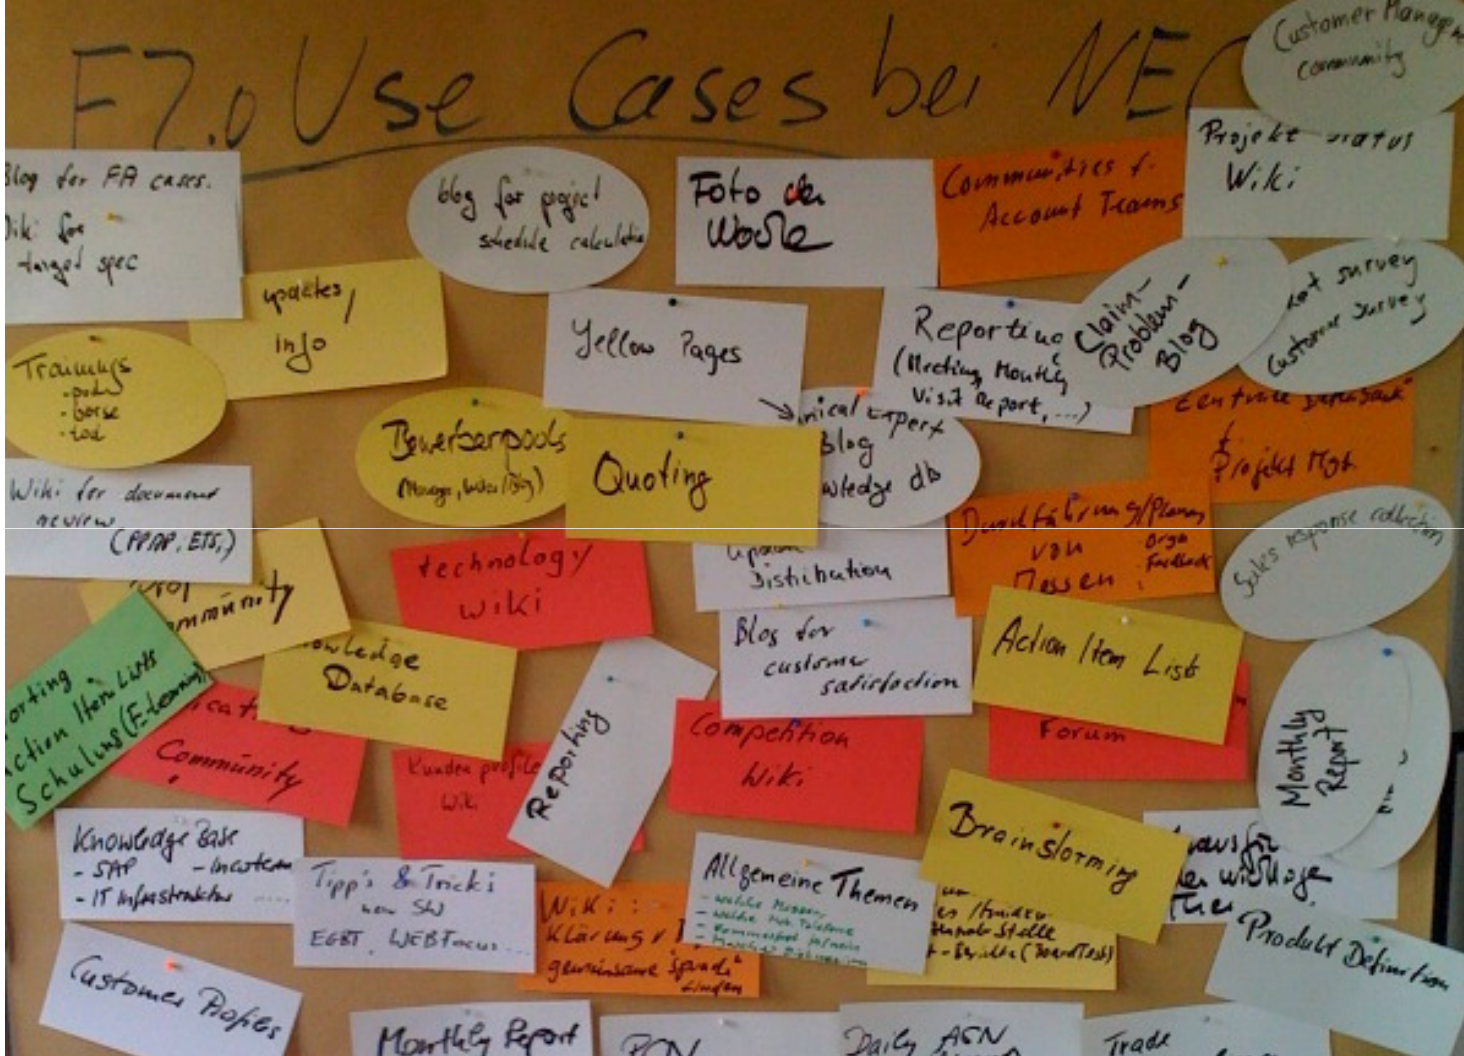 E2.0 Use Cases bei NEC
Customer Manage
community
Blog for FA cases.
Wiki for
target spec
blog for project
schedule calculation
Foto der
Woche
Communities f.
Account Teams
Projekt Status
Wiki
updates,
info
Yellow Pages
Reporting
(Meeting, Monthly
Visit Report, ...)
Claim-
Problem-
Blog
survey
Customer Survey
Trainings
- börse
- tool
Bewerberpools
Quoting
Expert
Blog
db
Projekt Mgt.
Wiki for document
review
(PPAP, ETS,)
Community
technology
wiki
Distribution
Durchführung/Planung
von
Messen
Orga
Feedback
Sales response collection
orting
Action Item Lists
Schulung (E-learning)
Community
Knowledge
Database
Blog for
customer
satisfaction
Action Item List
Forum
Kundenprofile
Wiki
Reporting
Competition
Wiki
Monthly
Report
Knowledge Base
- SAP
- IT Infrastruktur
Tipp's & Tricks
new SW
EGBT, WEBFocus...
Wiki:
Klärung
gemeinsame Sprache
finden
Allgemeine Themen
Brainstorming
Produkt Definition
Customer Profiles
Monthly Report
PCN
Daily ASN
Trade